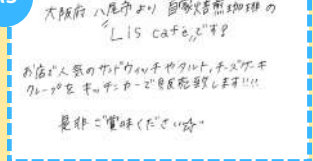 大阪府 八尾市より 自家焙煎珈琲の
"Lis cafe"です!
お店で人気のサンドウィッチやタルト,チーズケーキ
クレープを キッチンカーで 致します!!!!
是非 ご賞味ください☆